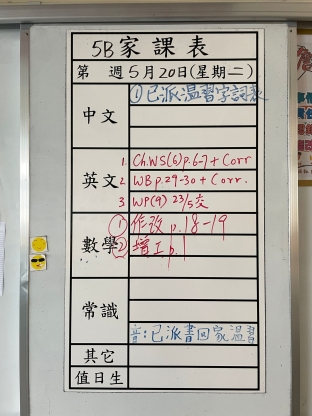 5B家課表
第 週 5月20日(星期二)
中文 ①已派溫習字詞表
英文
1. Ch.WS(6)p.6-7 + Corr
2 WB p.29-30 + Corr.
3 WP(9) 23/5交
數學
①作改 p.18-19
②增工 p.1
常識
音:已派書回家溫習
其它
值日生